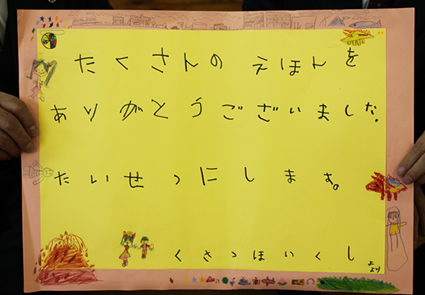 たくさんの えほんを
ありがとうございました。
たいせつにします。
くさつほいくし
より